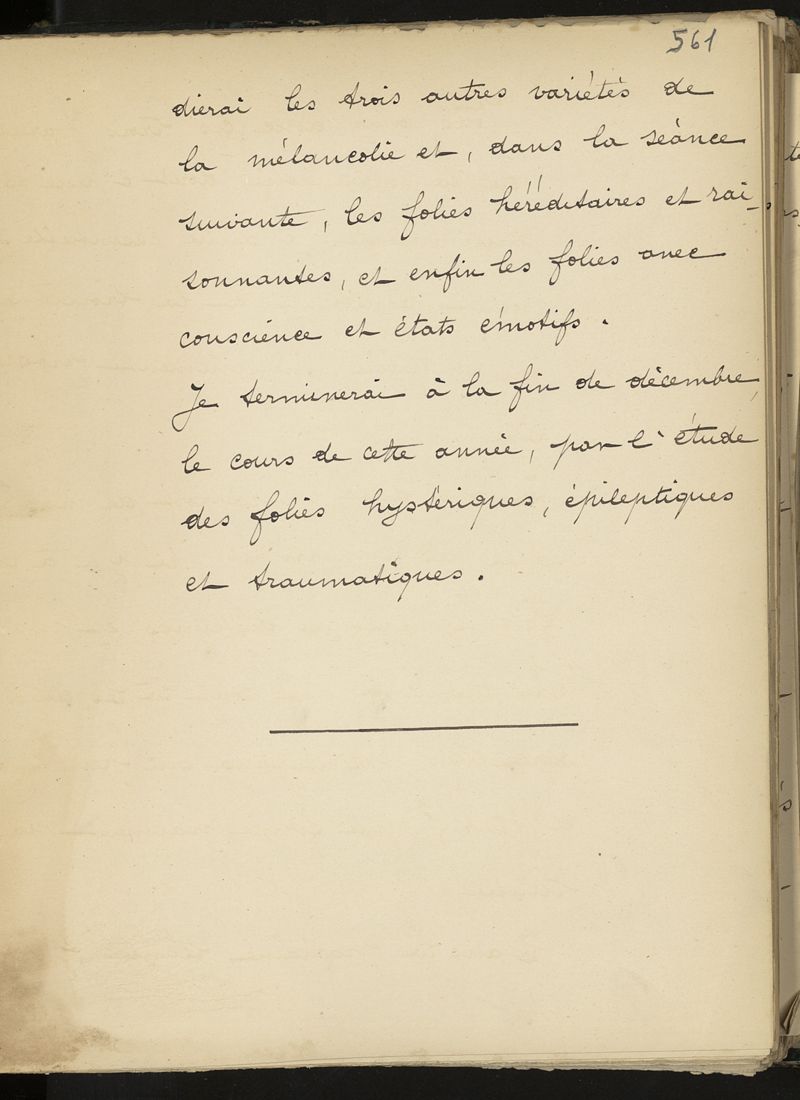 561
dierai les trois autres variétés de
la mélancolie et, dans la séance
suivante, les folies héréditaires et rai-
sonnantes, et enfin les folies avec
conscience et états émotifs.
Je terminerai à la fin de décembre,
le cours de cette année, par l'étude
des folies hystériques, épileptiques
et traumatiques.